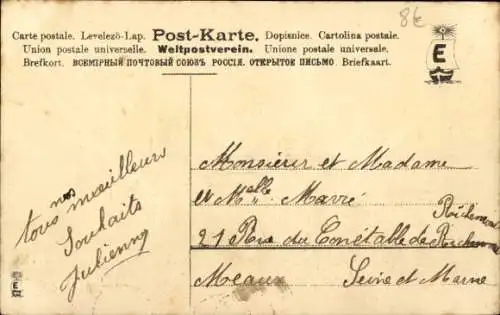 8€
Carte postale. Levelezö-Lap. Post-Karte. Dopisnice. Cartolina postale.
Union postale universelle. Weltpostverein. Unione postale universale.
Brefkort. ВСЕМІРНЫЙ ПОЧТОВЫЙ СОЮЗЪ РОССІЯ. ОТКРЫТОЕ ПИСЬМО Briefkaart.
E
nos
tous meilleurs
Souhaits
Julienne
Monsieur et Madame
et Melle Marré
21 Rue du Conétable de
Meaux Seine et Marne
E